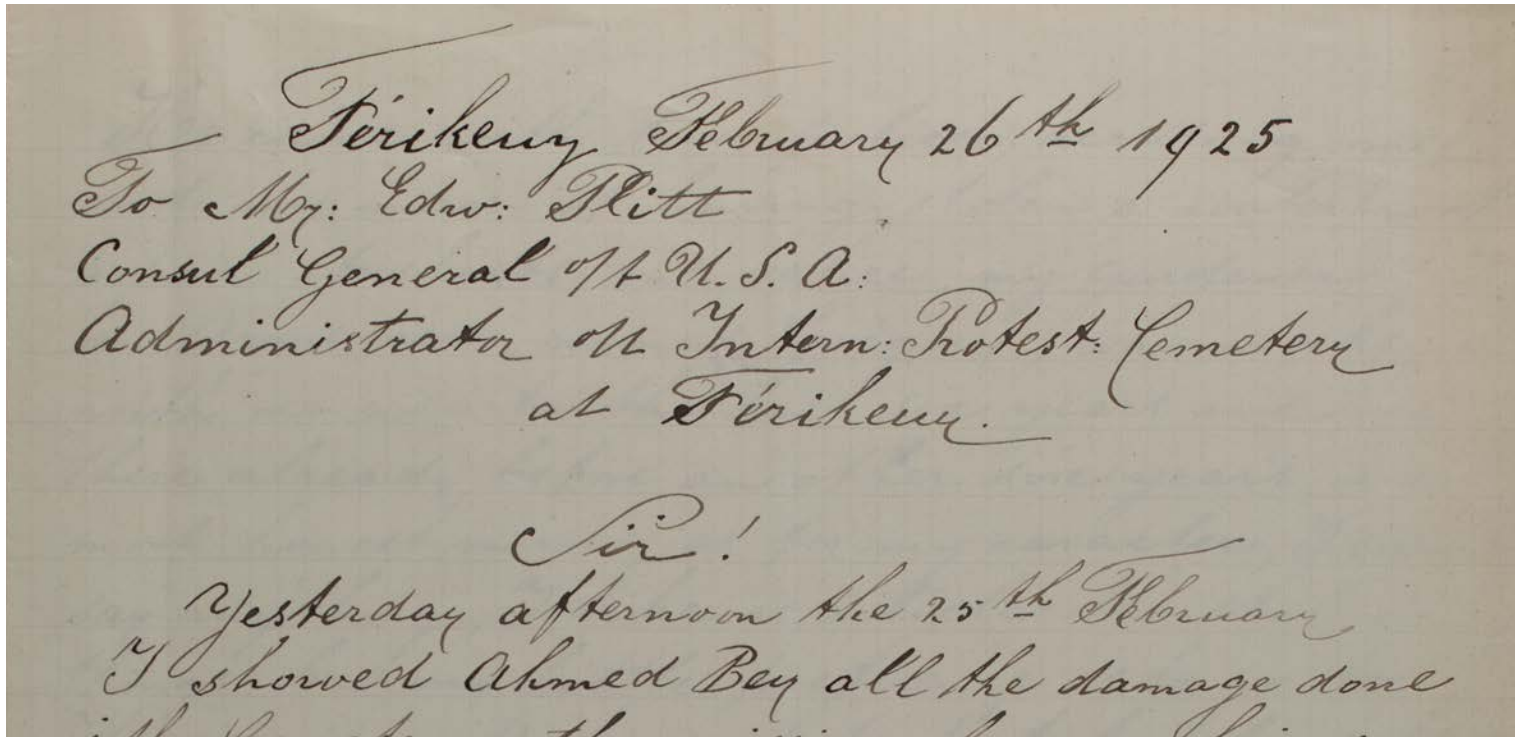 Férikeuy February 26th 1925
To Mr: Edw: Plitt
Consul General o/t U.S.A:
Administrator o/t Intern: Protest: Cemetery
at Férikeuy.
Sir!
Yesterday afternoon the 25th February
I showed Ahmed Bey all the damage done